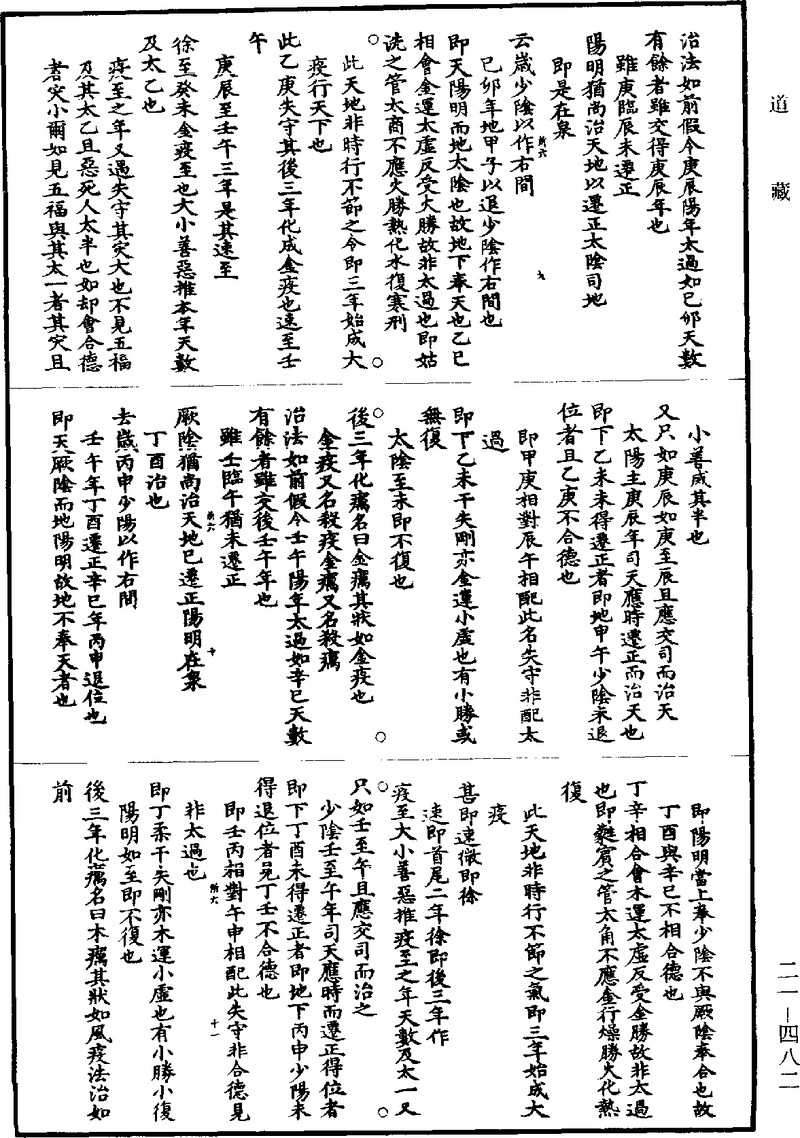 道藏
治法如前假令庚辰陽年太過如己卯天數
有餘者雖交得庚辰年也
雖庚臨辰未遷正
陽明猶尚治天地以遷正太陰司地
即是在泉
云歲少陰以作右間
己卯年地甲子以退少陰作右間也
即天陽明而地太陰也故地下奉天也乙巳
相會金運太虛反受火勝故非太過也即姑
洗之管太商不應火勝熱化水復寒刑
此天地非時行不節之令即三年始成大
疫行天下也
此乙庚失守其後三年化成金疫也速至壬
午
庚辰至壬午三年是其速至
徐至癸未金疫至也大小善惡推本年天數
及太乙也
疫至之年又遇失守其災大也不見五福
及其太乙且惡死人太半也如却會合德
者災小爾如見五福與其太一者其災且
小善咸其半也
又只如庚辰如庚至辰且應交司而治天
太陽主庚辰年司天應時遷正而治天也
即下乙未未得遷正者即地甲午少陰未退
位者且乙庚不合德也
即甲庚相對辰午相配此名失守非配太
過
即下乙未干失剛亦金運小虛也有小勝或
無復
太陰至未即不復也
後三年化癘名曰金癘其狀如金疫也
金疫又名殺疫金癘又名殺癘
治法如前假令壬午陽年太過如辛巳天數
有餘者雖交後壬午年也
雖壬臨午猶未遷正
厥陰猶尚治天地已遷正陽明在泉
丁酉治也
去歲丙申少陽以作右間
壬午年丁酉遷正辛巳年丙申退位也
即天厥陰而地陽明故地不奉天者也
即陽明當上奉少陰不與厥陰奉合也故
丁酉與辛巳不相合德也
丁辛相合會木運太虛反受金勝故非太過
也即蕤賓之管太角不應金行燥勝火化熱
復
此天地非時行不節之氣即三年始成大
疫
甚即速微即徐
速即首尾二年徐即後三年作
疫至大小善惡推疫至之年天數及太一又
只如壬至午且應交司而治之
少陰壬至午年司天應時而遷正得位者
即下丁酉未得遷正者即地下丙申少陽未
得退位者見丁壬不合德也
即壬丙相對午申相配此失守非合德見
非太過也
即丁柔干失剛亦木運小虛也有小勝小復
陽明如至即不復也
後三年化癘名曰木癘其狀如風疫法治如
前
二一－四八二